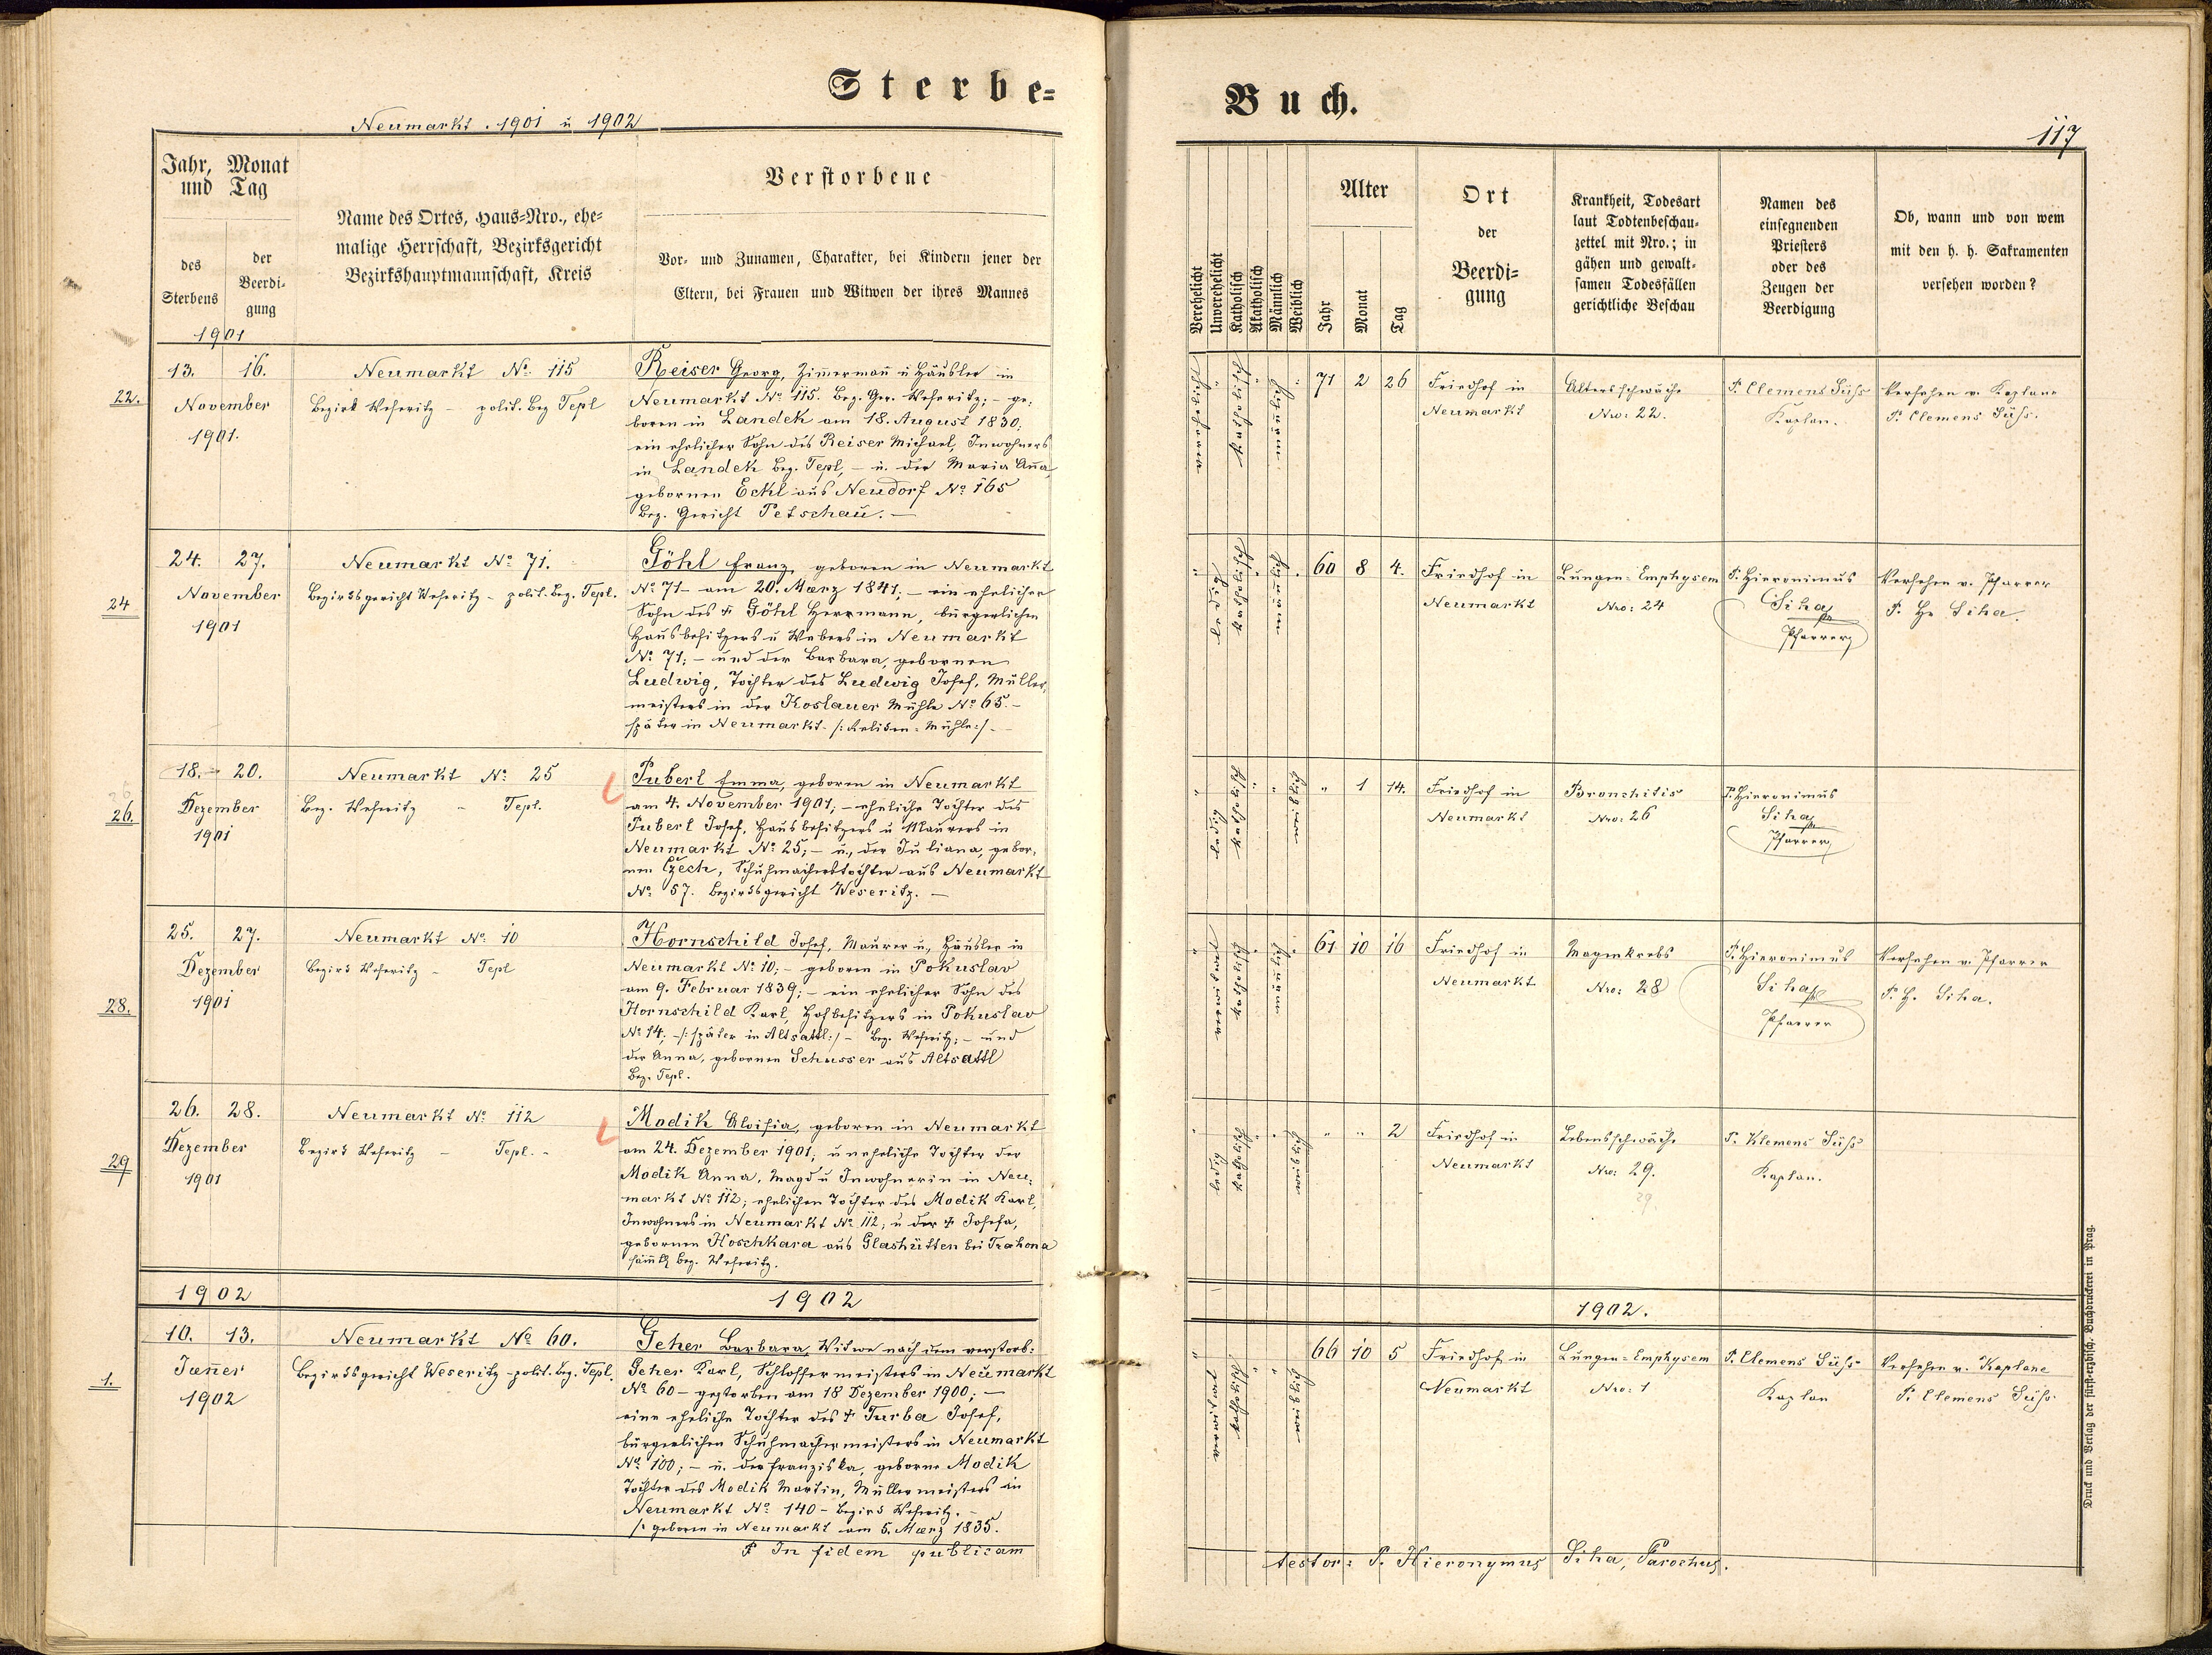 Sterbe=
Neumarkt . 1901 u 1902
Jahr, Monat
und Tag
des
Sterbens
der
Beerdi-
gung
Name des Ortes, Haus-Nro., ehe-
malige Herrschaft, Bezirksgericht
Bezirkshauptmannschaft, Kreis
Verstorbene
Vor- und Zunamen, Charakter, bei Kindern jener der
Eltern, bei Frauen und Witwen der ihres Mannes
1901
22.
13. 16.
November
1901.
Neumarkt No 115
Bezirk Weseritz – polit. Bez Tepl
Reiser Georg, Zim̄ermañ u Häusler in
Neumarkt No 115. Bez. Ger. Weseritz; – ge-
boren in Landek am 18. August 1830;
ein ehelicher Sohn des Reiser Michael, Inwohners
in Landek Bez. Tepl, – u. der Maria Añа
gebornen Eckl aus Neudorf No 165
Bez. Gericht Petschau. –
24
24. 27.
November
1901
Neumarkt No 71.
Bezirksgericht Weseritz – polit. Bez. Tepl.
Göhl Franz, geboren in Neumarkt
No 71 – am 20. Maerz 1841; – ein ehelicher
Sohn des † Göhl Herrmann, bürgerlichen
Hausbesitzers u Webers in Neumarkt
No 71; – und der Barbara, gebornen
Ludwig, Tochter des Ludwig Josef, Müller-
meisters in der Koslauer Mühle No 65. –
später in Neumarkt
26.
18. 20.
Dezember
1901
Neumarkt No 25
Bez. Weseritz – Tepl.
Pubert Emma, geboren in Neumarkt
am 4. November 1901; – eheliche Tochter des
Pubert Josef, Hausbesitzers u Maurers in
Neumarkt No 25; – u., der Juliana, gebor-
nen Czech, Schuhmacherstochter aus Neumarkt
No 57. Bezirksgericht Weseritz. –
28.
25. 27.
Dezember
1901
Neumarkt No 10
Bezirk Weseritz – Tepl
Hornschild Josef, Maurer u., Häusler in
Neumarkt No 10; – geboren in Pokuslav
am 9. Februar 1839; – ein ehelicher Sohn des
Hornschild Karl, Hofbesitzers in Pokuslav
No 14; –/: später in Altsattl :/ – Bez. Weseritz; – und
der Anna, gebornen Schusser aus Altsattl
Bez. Tepl.
29
26. 28.
Dezember
1901
Neumarkt No 112
Bezirk Weseritz – Tepl. –
Modik Aloisia, geboren in Neumarkt
am 24. Dezember 1901; uneheliche Tochter der
Modik Anna, Magd u Inwohnerin in Neu-
markt No 112; ehelichen Tochter des Modik Karl,
Inwohners in Neumarkt No 112; u der † Josefa,
gebornen Hoschkara aus Glashütten bei Trahona
säm̄tl. Bez. Weseritz.
1902 1902
1.
10. 13.
Jaen̄er
1902
Neumarkt No 60.
Bezirksgericht Weseritz – polit. Bez. Tepl.
Geher Barbara, Witwe nach dem verstorb:
Geher Karl, Schlossermeisters in Neumarkt
No 60 – gestorben am 18 Dezember 1900; –
eine eheliche Tochter des † Turba Josef,
bürgerlichen Schuhmachermeisters in Neumarkt
No 100; – u. der Franziska, geborne Modik
Tochter des Modik Martin, Müllermeisters in
Neumarkt No 140 – Bezirk Weseritz. –
/: geboren in Neumarkt am 5. Maerz 1835.
In fidem publicam
Buch.
117
Verehelicht
Unverehelicht
Katholisch
Akatholisch
Männlich
Weiblich
Alter
Jahr
Monat
Tag
Ort
der
Beerdi-
gung
Krankheit, Todesart
laut Todtenbeschau-
zettel mit Nro.; in
gähen und gewalt-
samen Todesfällen
gerichtliche Beschau
Namen des
einsegnenden
Priesters
oder des
Zeugen der
Beerdigung
Ob, wann und von wem
mit den h. h. Sakramenten
versehen worden?
katholisch
71 2 26
Friedhof in
Neumarkt
Altersschwäche
Nro: 22.
P. Clemens Süss
Kaplan.
Versehen v. Kaplane
P. Clemens Süss.
ledig
katholisch
60 8 4.
Friedhof in
Neumarkt
Lungen-Emphysem
Nro: 24
P. Hieronimus
Siha
Pfarrer
Versehen v. Pfarrer
P. H. Siha.
ledig
katholisch
" 1 14.
Friedhof in
Neumarkt
Bronchitis
Nro: 26
P. Hieronimus
Siha
Pfarrer
katholisch
61 10 16
Friedhof in
Neumarkt
Magenkrebs
Nro: 28
P. Hieronimus
Siha
Pfarrer
Versehen v. Pfarrer
P. H. Siha.
ledig
katholisch
" " 2
Friedhof in
Neumarkt
Lebensschwäche
Nro: 29.
29.
P. Klemens Süss
Kaplan.
1902.
katholisch
66 10 5
Friedhof in
Neumarkt
Lungen-Emphysem
Nro: 1
P. Clemens Süss
Kaplan
Versehen v. Kaplane
P. Clemens Süss
testor: P. Hieronymus Siha, Parochus.
Druck und Verlag der fürst-erzbisch. Buchdruckerei in Prag.